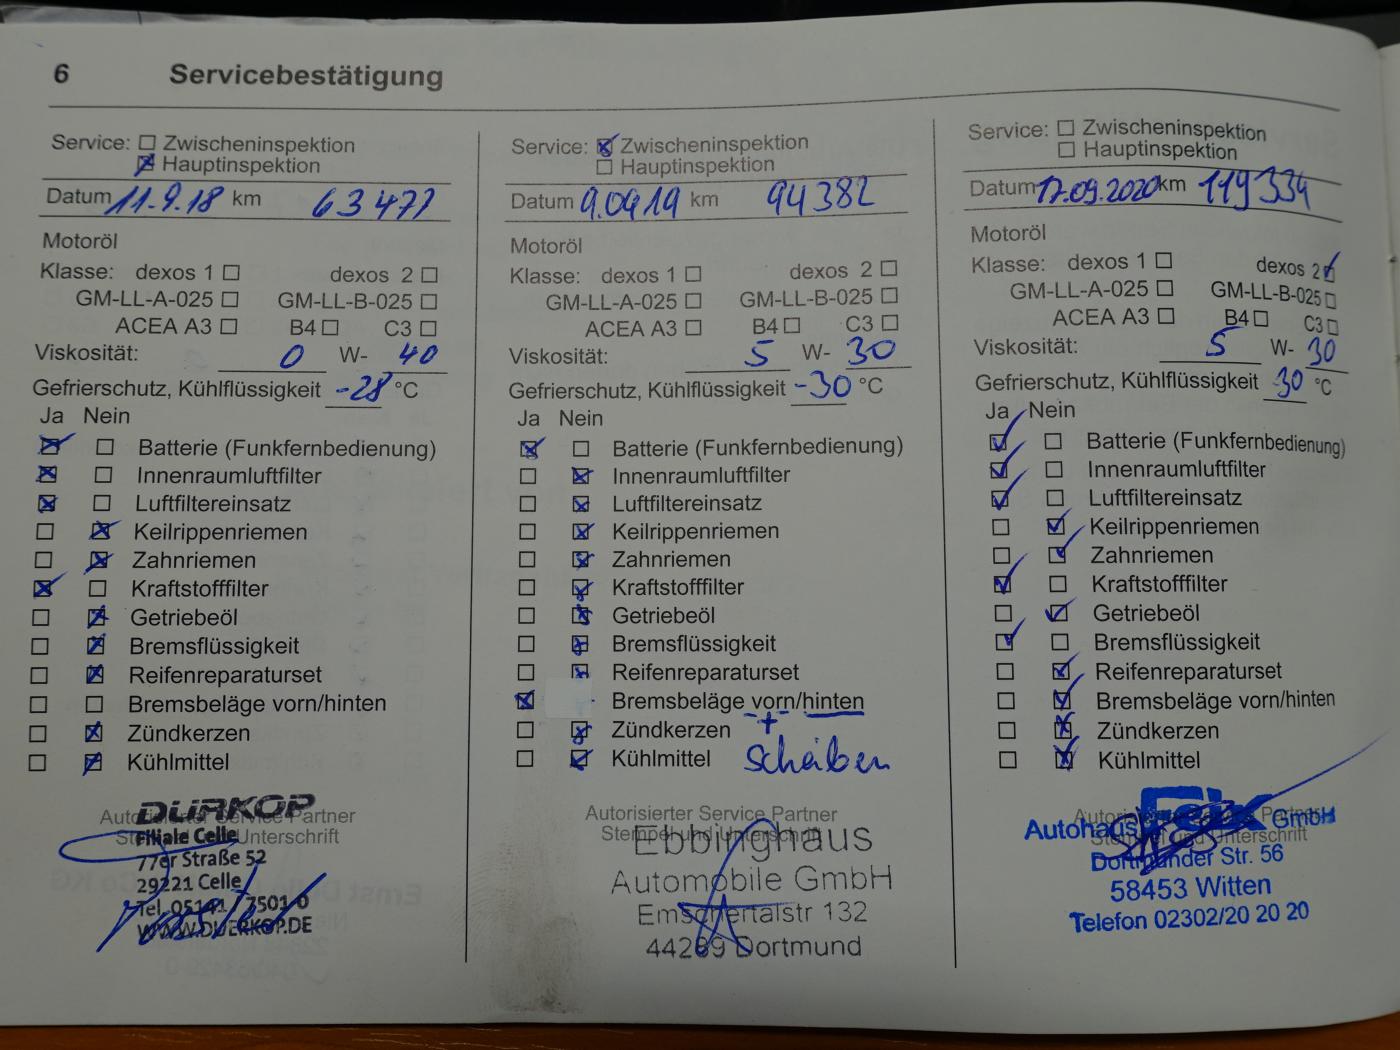 6 Servicebestätigung
Service: Zwischeninspektion
Hauptinspektion
Datum 11.9.18 km 63477
Motoröl
Klasse: dexos 1 dexos 2
GM-LL-A-025 GM-LL-B-025
ACEA A3 B4 C3
Viskosität: 0 W- 40
Gefrierschutz, Kühlflüssigkeit -28 °C
Ja Nein
Batterie (Funkfernbedienung)
Innenraumluftfilter
Luftfiltereinsatz
Keilrippenriemen
Zahnriemen
Kraftstofffilter
Getriebeöl
Bremsflüssigkeit
Reifenreparaturset
Bremsbeläge vorn/hinten
Zündkerzen
Kühlmittel
Autorisierter Service Partner
Stempel und Unterschrift
DÜRKOP
Filiale Celle
77er Straße 52
29221 Celle
Tel. 05141 / 7501 0
WWW.DUERKOP.DE
Service: Zwischeninspektion
Hauptinspektion
Datum 9.0919 km 94382
Motoröl
Klasse: dexos 1 dexos 2
GM-LL-A-025 GM-LL-B-025
ACEA A3 B4 C3
Viskosität: 5 W- 30
Gefrierschutz, Kühlflüssigkeit -30 °C
Ja Nein
Batterie (Funkfernbedienung)
Innenraumluftfilter
Luftfiltereinsatz
Keilrippenriemen
Zahnriemen
Kraftstofffilter
Getriebeöl
Bremsflüssigkeit
Reifenreparaturset
Bremsbeläge vorn/hinten
Zündkerzen +
Kühlmittel Scheiben
Autorisierter Service Partner
Stempel und Unterschrift
Ebbinghaus
Automobile GmbH
Emschertalstr 132
44269 Dortmund
Service: Zwischeninspektion
Hauptinspektion
Datum 17.09.2020 km 119334
Motoröl
Klasse: dexos 1 dexos 2
GM-LL-A-025 GM-LL-B-025
ACEA A3 B4 C3
Viskosität: 5 W- 30
Gefrierschutz, Kühlflüssigkeit -30 °C
Ja Nein
Batterie (Funkfernbedienung)
Innenraumluftfilter
Luftfiltereinsatz
Keilrippenriemen
Zahnriemen
Kraftstofffilter
Getriebeöl
Bremsflüssigkeit
Reifenreparaturset
Bremsbeläge vorn/hinten
Zündkerzen
Kühlmittel
Autorisierter Service Partner
Stempel und Unterschrift
Autohaus Feix GmbH
Dortmunder Str. 56
58453 Witten
Telefon 02302/20 20 20